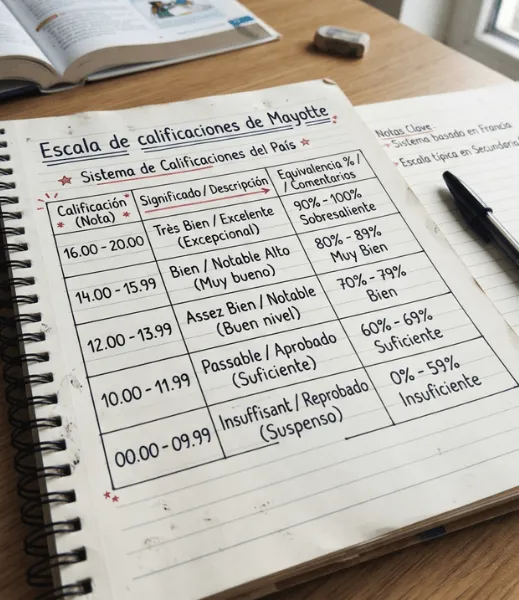 Escala de calificaciones de Mayotte
Sistema de Calificaciones del País
Calificación
(Nota)
Significado / Descripción
Equivalencia %
/ Comentarios
16.00 - 20.00
Très Bien / Excelente
(Excepcional)
90% - 100%
Sobresaliente
14.00 - 15.99
Bien / Notable Alto
(Muy bueno)
80% - 89%
Muy Bien
12.00 - 13.99
Assez Bien / Notable
(Buen nivel)
70% - 79%
Bien
10.00 - 11.99
Passable / Aprobado
(Suficiente)
60% - 69%
Suficiente
00.00 - 09.99
Insuffisant / Reprobado
(Suspenso)
0% - 59%
Insuficiente
Notas Clave:
Sistema basado en Francia
Escala típica en Secundaria